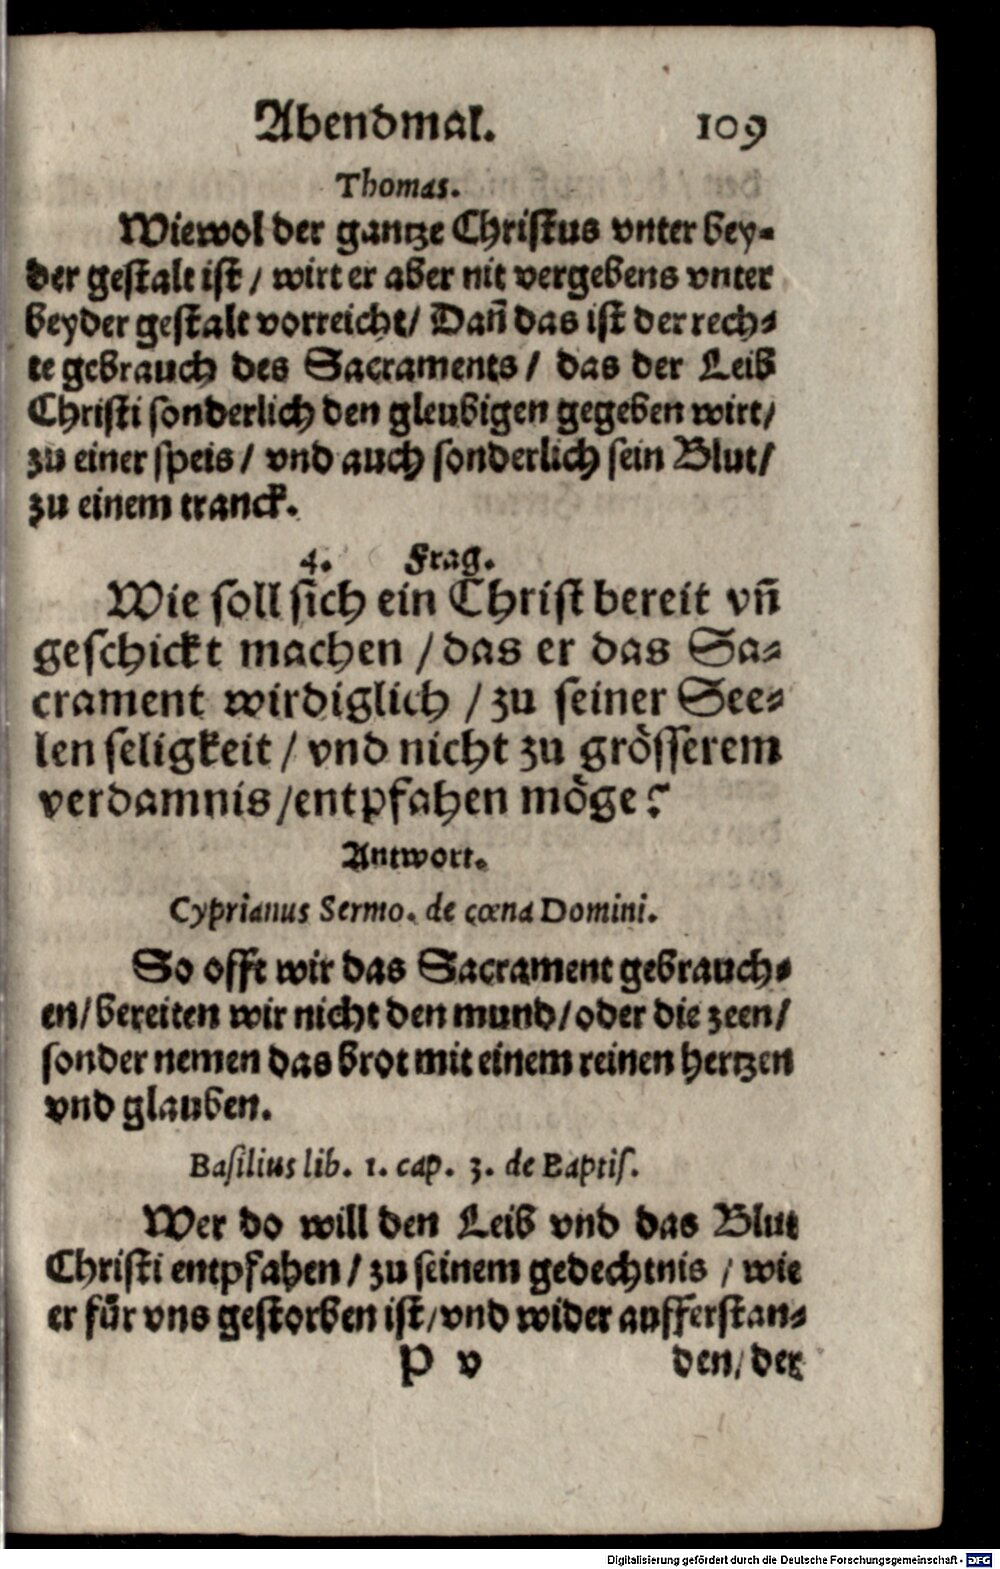 Abendmal. 109
Thomas.
Wiewol der gantze Christus vnter bey-
der gestalt ist / wirt er aber nit vergebens vnter
beyder gestalt vorreicht / Dañ das ist der rech-
te gebrauch des Sacraments / das der Leib
Christi sonderlich den gleubigen gegeben wirt /
zu einer speis / vnd auch sonderlich sein Blut /
zu einem tranck.
4. Frag.
Wie soll sich ein Christ bereit vñ
geschickt machen / das er das Sa-
crament wirdiglich / zu seiner See-
len seligkeit / vnd nicht zu grösserem
verdamnis / entpfahen möge?
Antwort.
Cyprianus Sermo. de cœna Domini.
So offt wir das Sacrament gebrauch-
en / bereiten wir nicht den mund / oder die zeen /
sonder nemen das brot mit einem reinen hertzen
vnd glauben.
Basilius lib. 1. cap. 3. de Baptis.
Wer do will den Leib vnd das Blut
Christi empfahen / zu seinem gedechtnis / wie
er für vns gestorben ist / vnd wider aufferstan-
P v den / der
Digitalisierung gefördert durch die Deutsche Forschungsgemeinschaft - DFG